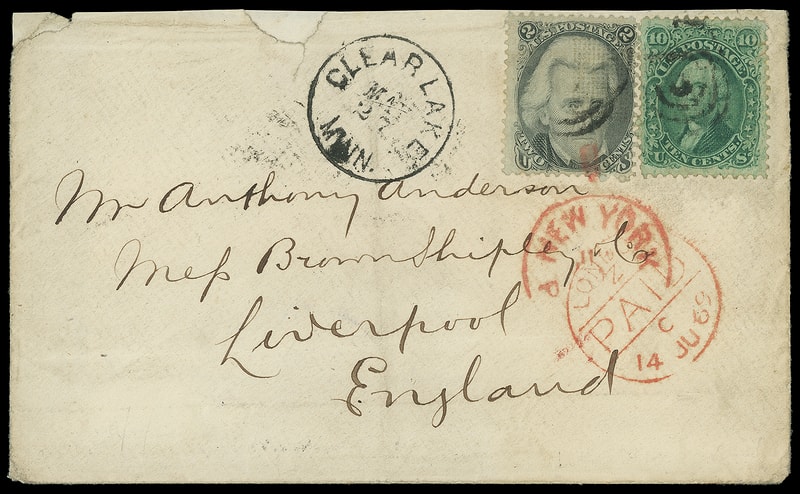 CLEAR LAKE MINN.
MAY
2 U.S. POSTAGE 2
U TWO CENTS S
10 U.S. POSTAGE 10
U. TEN CENTS. S.
Mr Anthony Anderson
Mess Brown Shipley & Co
Liverpool
England
NEW YORK
LONDON
PAID
C
14 JU 69